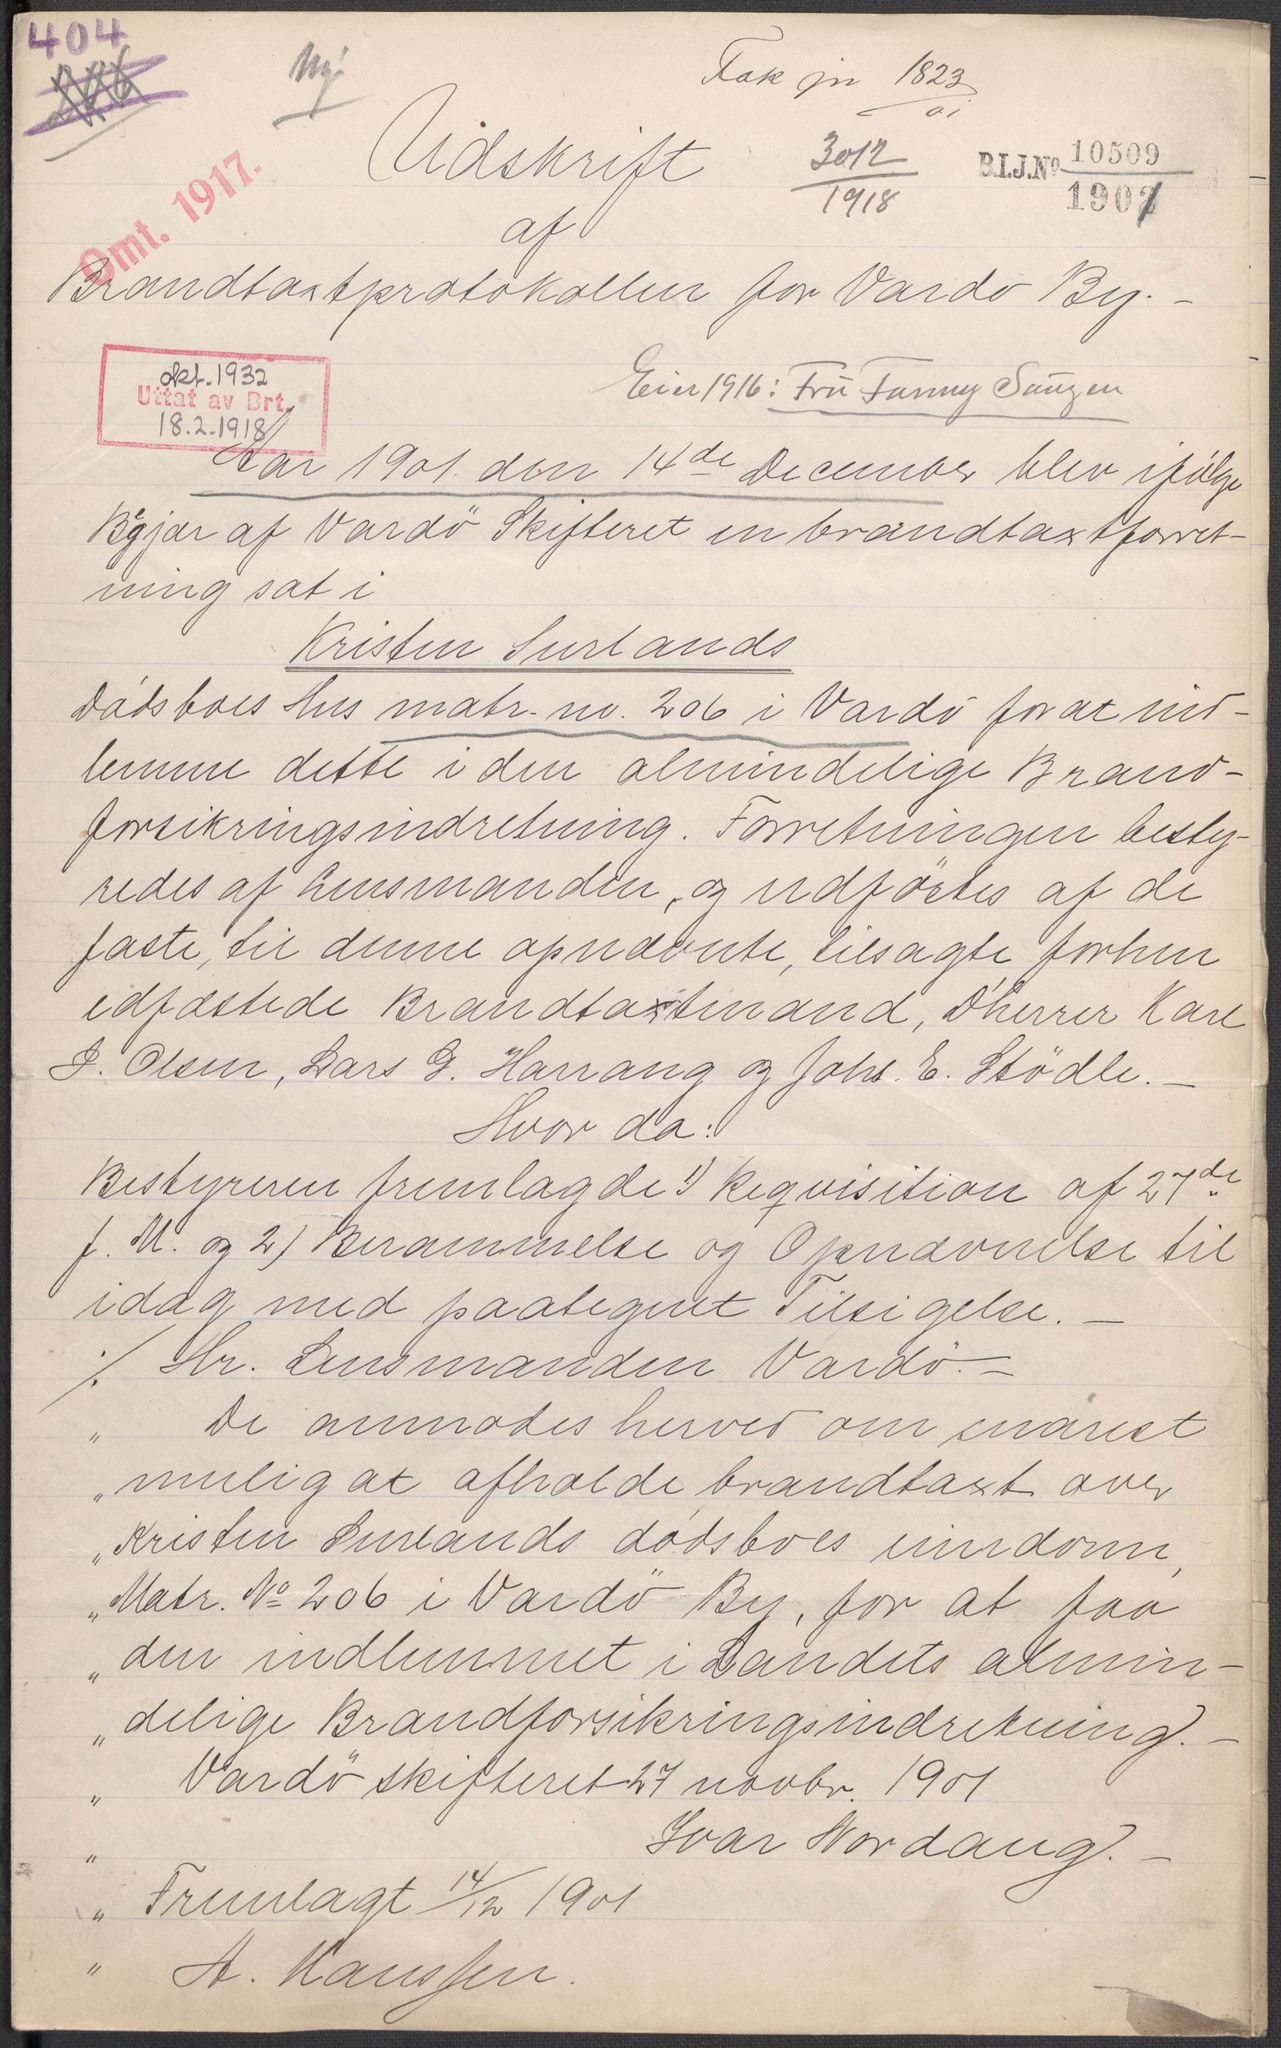 404
Ny
Fak jn 1823/01
Udskrift
3012/1918
B.I.J.No 10509/1901
Omt. 1917.
af
Brandtaxtprotokollen for Vardö By. –
okt. 1932
Uttat av Brt.
18.2.1918
Eier 1916: Frü Fanny
Aar 1901 den 14de December blev ifølge
Begjær af Vardö Skifteret en brandtaxtforret-
ning sat i
Kristen Surlands
Dödsboes Hus matr. no. 206 i Vardö for at ind-
lemme dette i den almindelige Brand-
forsikringsindretning. Forretningen besty-
redes af Lensmanden, og udförtes af de
faste, til denne opnævnte, tilsagte, forhen
edfæstede Brandtaxtmænd, D'herrer Karl
J. Olsen, Lars G. Harrang og Johs. E. Stödle. –
Hvor da:
Bestyreren fremlagde 1) Reqvisition af 27de
f. M. og 2) Berammelse og Opnævnelse til
idag med paategnet Tilsigelse. –
./. Hr. Lensmanden Vardö. –
" De anmodes herved om snarest
" mulig at afholde brandtaxt over
" Kristen Surlands dödsboes eiendom,
" Matr. No 206 i Vardö By, for at faa
" den indlemmet i Landets almin-
" delige Brandforsikringsindretning. –
" Vardö skifteret 27 novbr. 1901
" Ivar Nordaug. –
" Fremlagt 14/12 1901
" A. Hanssen.